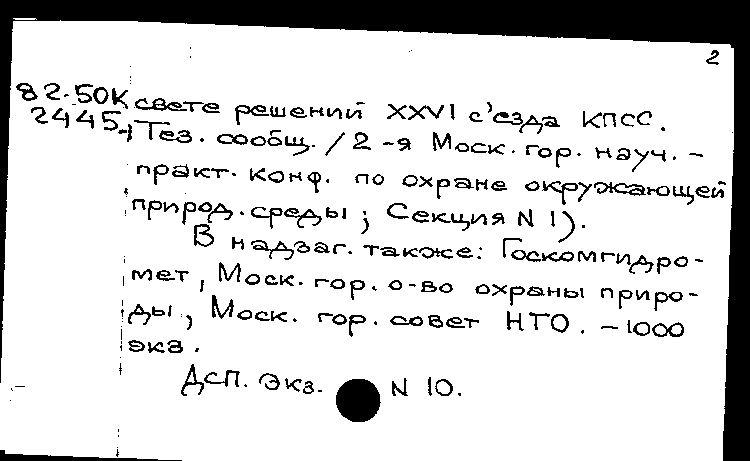 2
82.50К свете решений XXVI с'езда КПСС.
2445-1 Тез. сообщ. / 2-я Моск. гор. науч. -
практ. конф. по охране окружающей
природ. среды ; Секция N 1).
В надзаг. также: Госкомгидро-
мет, Моск. гор. о-во охраны приро-
ды, Моск. гор. совет НТО. - 1000
экз.
ДСП. Экз. N 10.